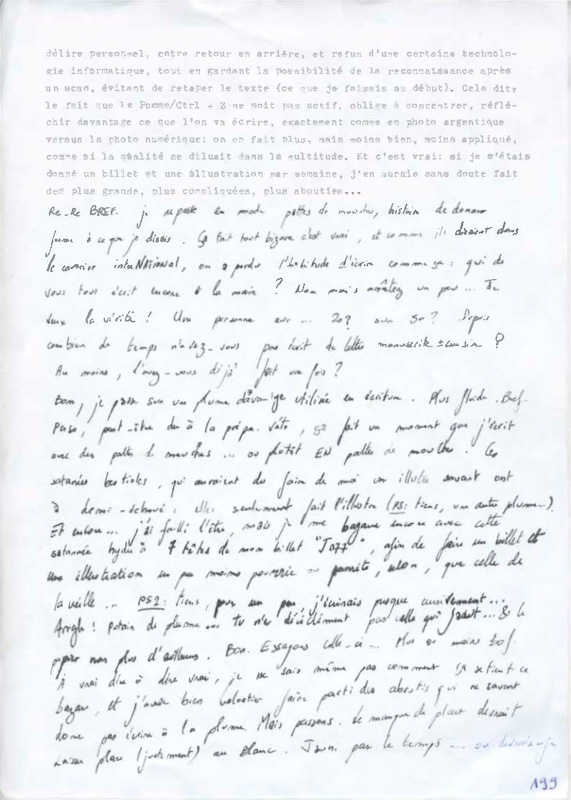 délire personnel, entre retour en arrière, et refus d'une certaine technolo-
gie informatique, tout en gardant la possibilité de la reconnaissance après
un scan, évitant de retaper le texte (ce que je faisais au début). Cela dit,
le fait que le Pomme/Ctrl + Z ne soit pas actif, oblige à concentrer, réflé-
chir davantage ce que l'on va écrire, exactement comme en photo argentique
versus la photo numérique: on en fait plus, mais moins bien, moins appliqué,
comme si la qualité se diluait dans la multitude. Et c'est vrai: si je m'étais
donné un billet et une illustration par semaine, j'en aurais sans doute fait
des plus grande, plus compliquées, plus abouties...
Re-Re BREF. je repasse en mode pattes de mouches, histoire de donner
forme à ce que je disais. Ça fait tout bizarre c'est vrai, et comme ils disaient dans
le comique interNATIONAL, on a perdu l'habitude d'écrire comme ça : qui de
vous tous écrit encore à la main ? Non mais arrêtez un peu... Je
veux la vérité ! Une personne sur ... 20? sur 50? Depuis
combien de temps n'avez-vous pas écrit de lettre manuscrite ?
Au moins, l'avez-vous déjà fait une fois ?
Bon, je passe sur une plume davantage utilisée en écriture. Plus fluide. Bref.
Puis, peut-être dû à la prépa. , ça fait un moment que j'écrit
avec des pattes de mouches ... ou plutôt EN pattes de mouches. Ces
satanées bestioles, qui auraient du faire de moi un illustre savant ont
à demi-échoué : elles seulement fait l'illustre (PS: tiens, une autre plume...).
Et encore... j'ai failli l'être, mais je me bagarre encore avec cette
satanée hydre à 7 têtes de mon billet "Jazz", afin de faire un billet et
une illustration un peu moins pourrie ou , que celle de
la veille... PS2: tiens, pour un peu j'écrirais presque cursivement...
Arrgh! Putain de plume... Tu n'es décidément pas celle qu'il faut... & le
papier non plus d'ailleurs. Bon. Essayons celle-ci... Plus ou moins bof.
À vrai dire à dire vrai, je ne sais même pas comment ça se tient ce
bazar, et j'avoue bien volontier faire parti des abrutis qui ne savent
donc pas écrire à la plume. Mais passons. Le manque de place devrait
laisser place (justement) au Blanc. par le temps ... ou
199